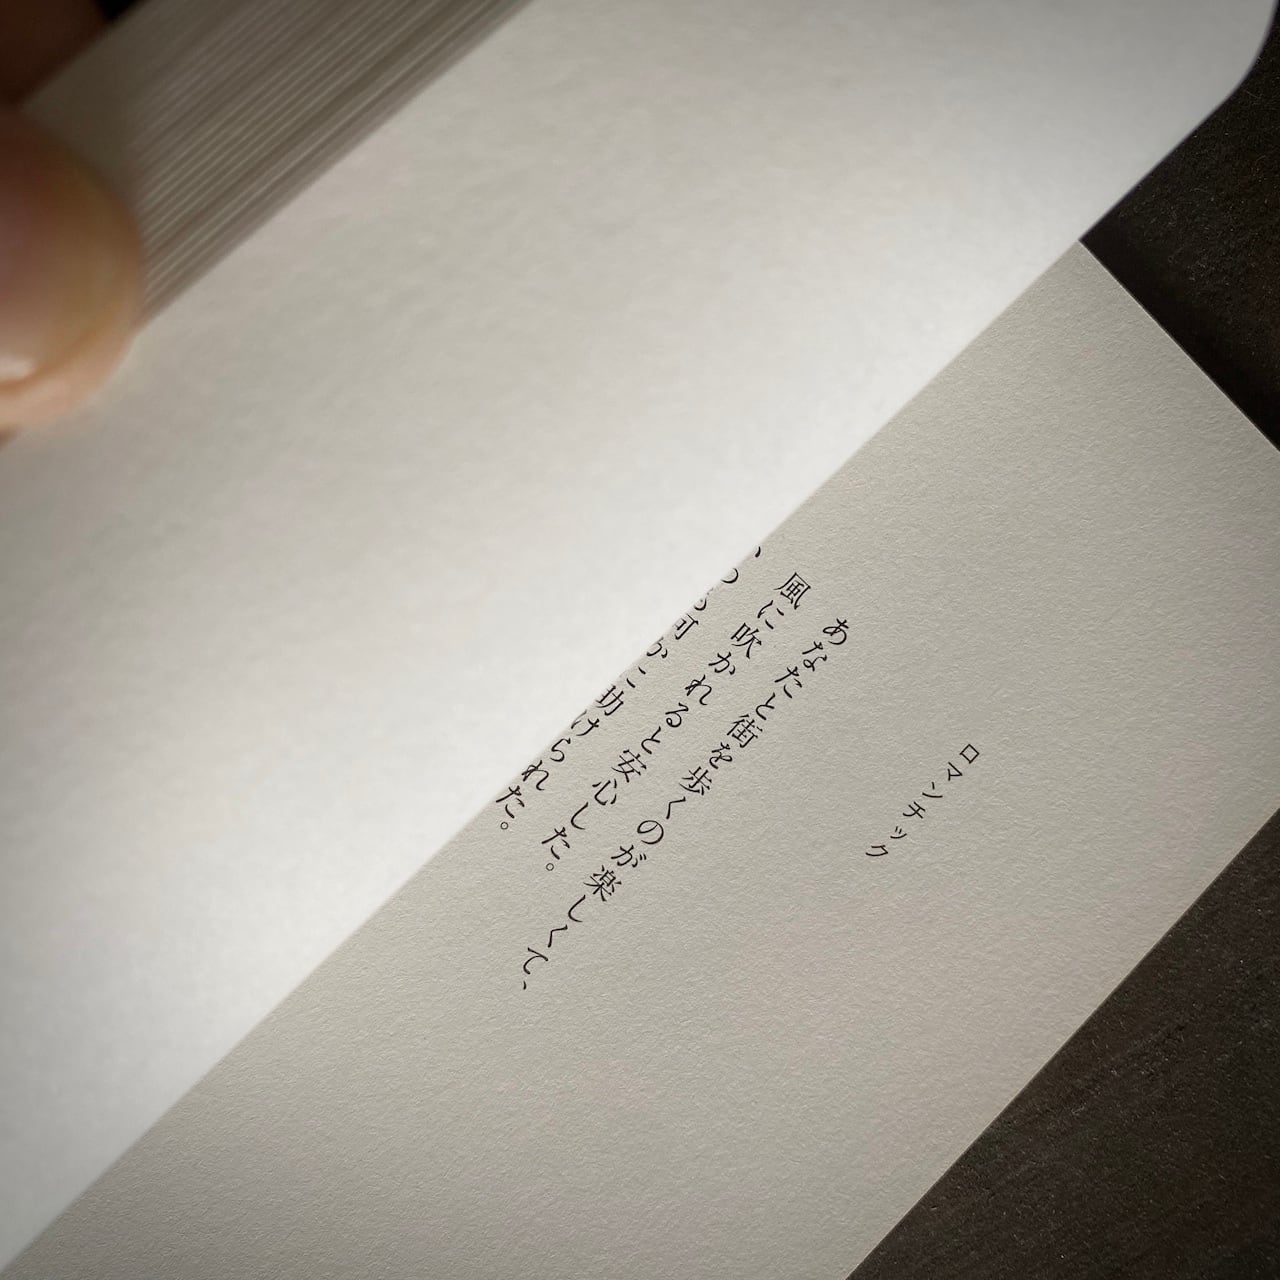 ロマンチック
あなたと街を歩くのが楽しくて、
風に吹かれると安心した。
何かに助けられた。